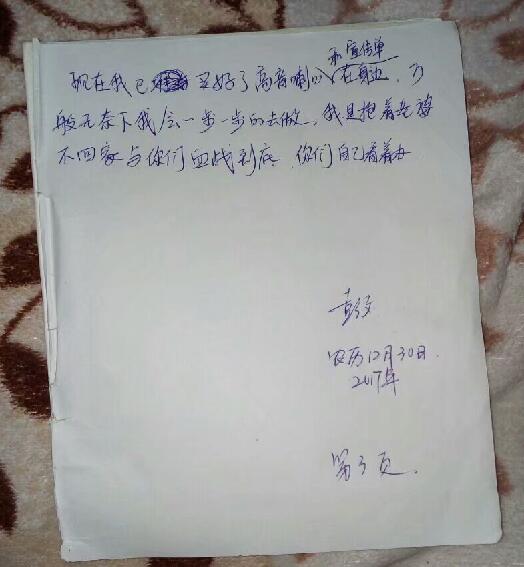 和宣传单
现在我已买好了高音喇叭在身边,万
般无奈下我会一步一步的去做,我是抱着老婆
不回家与你们血战到底,你们自己看着办
农历12月30日.
2017年
第3页.